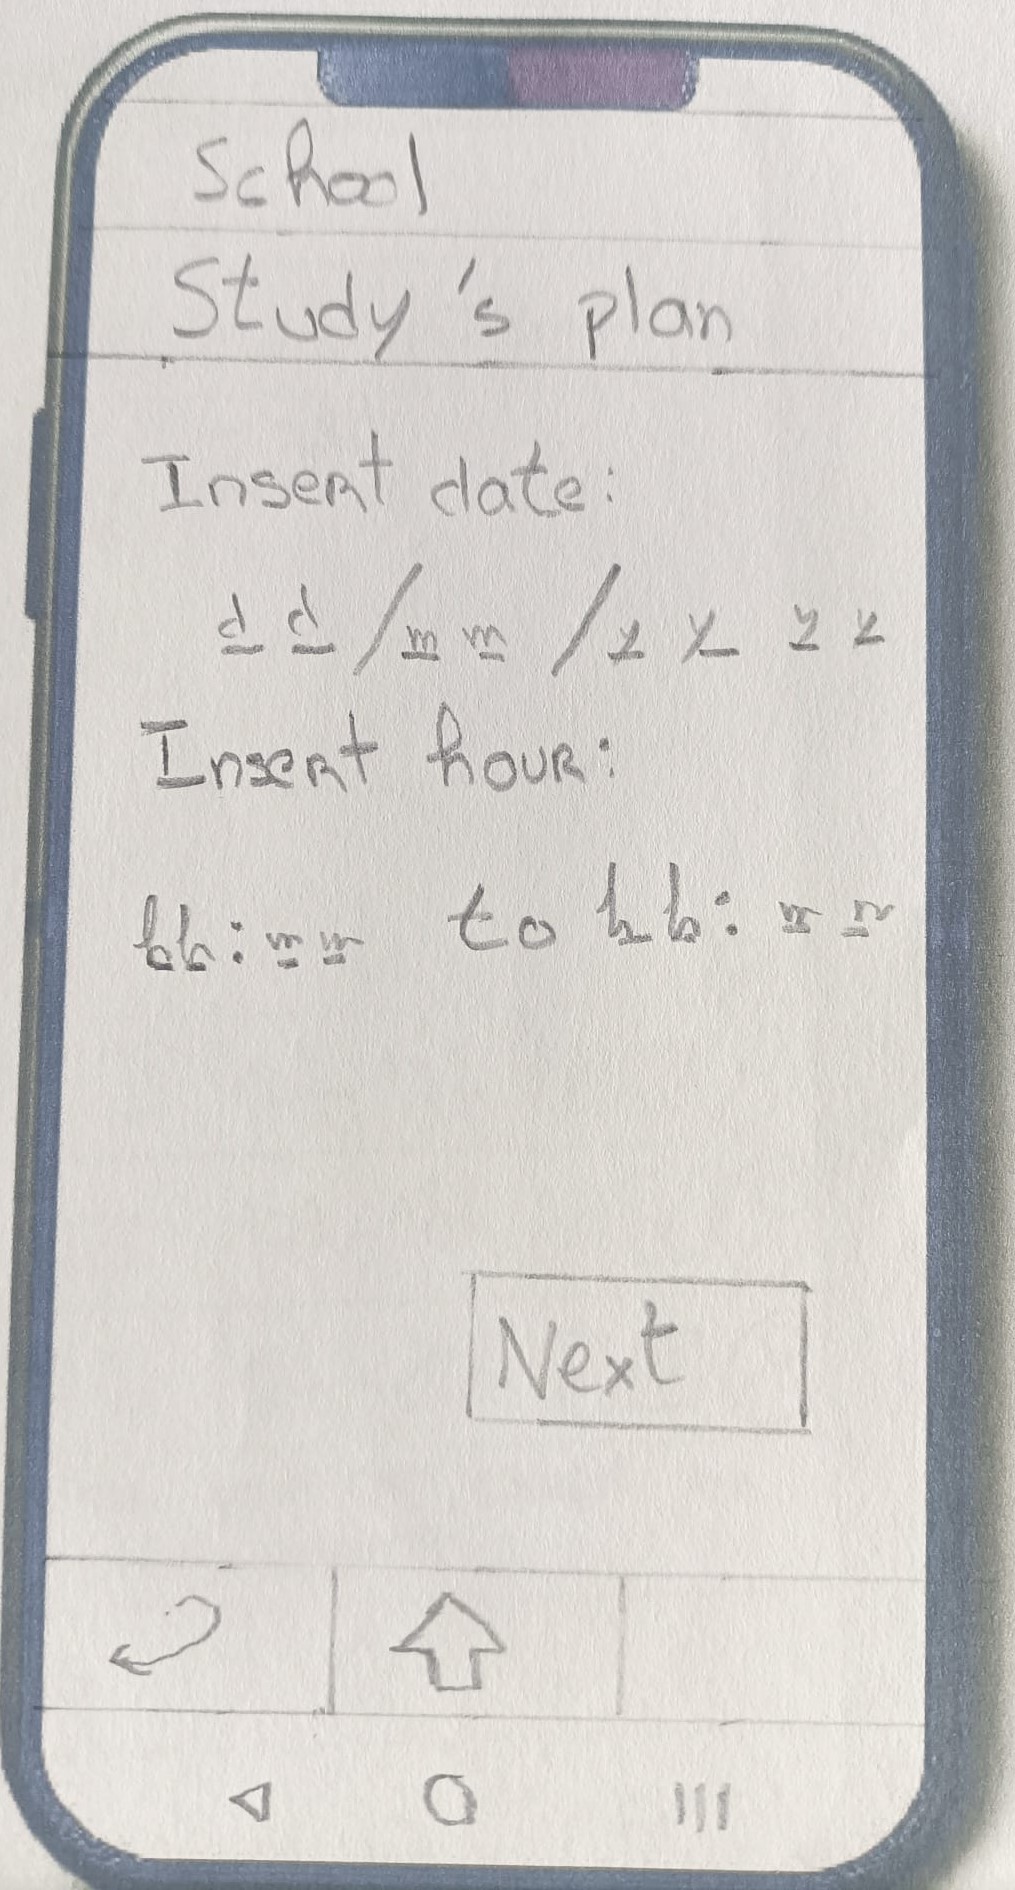 School
Study's plan
Insert date:
dd/mm/yyyy
Insert hour:
hh:mm to hh:mm
Next